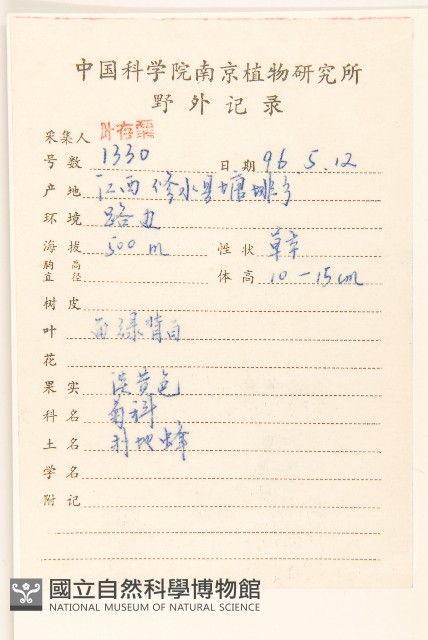 中国科学院南京植物研究所
野外记录
采集人 叶存粟
号数 1330 日期 96.5.12
产地 江西修水县塘排乡
环境 路边
海拔 500 m 性状 草本
胸高直径 体高 10-15cm
树皮
叶 面绿背白
花
果实 淡黄色
科名 菊科
土名 利地蜂
学名
附记
國立自然科學博物館
NATIONAL MUSEUM OF NATURAL SCIENCE